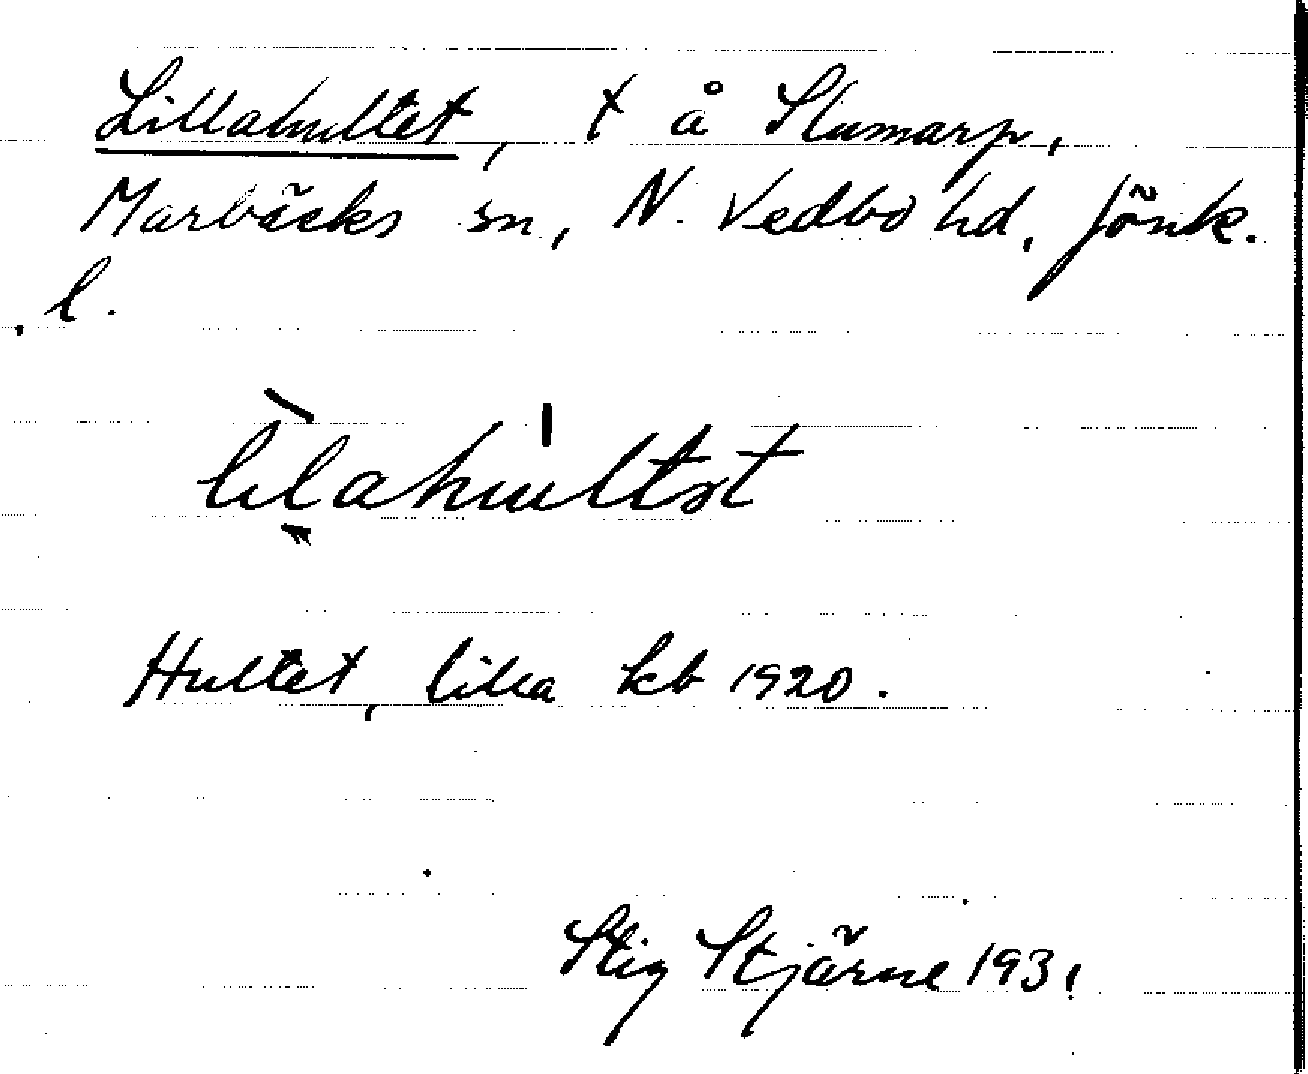 Lillahultet, t å Slumarp,
Marbäcks sn, N. Vedbo hd, Jönk.
l.
lìlahu̍ltət
Hultet, lilla kb 1920.
Stig Stjärne 1931